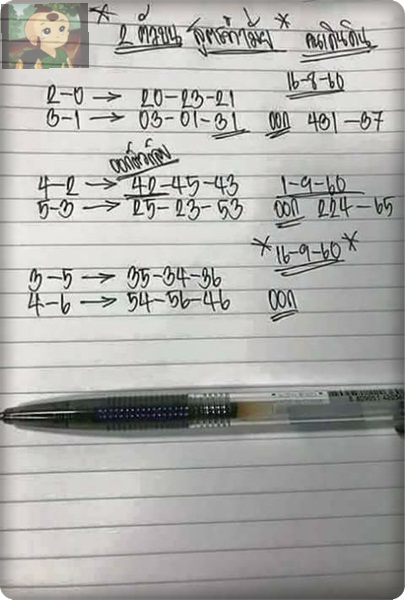 * 2 ตัวบน สูตร * คนเดินดิน
16-8-60
2-0 → 20-23-21
3-1 → 03-01-31 ออก 431-37
4-2 → 42-45-43 1-9-60
5-3 → 25-23-53 ออก 224-65
* 16-9-60 *
3-5 → 35-34-36
4-6 → 54-56-46 ออก